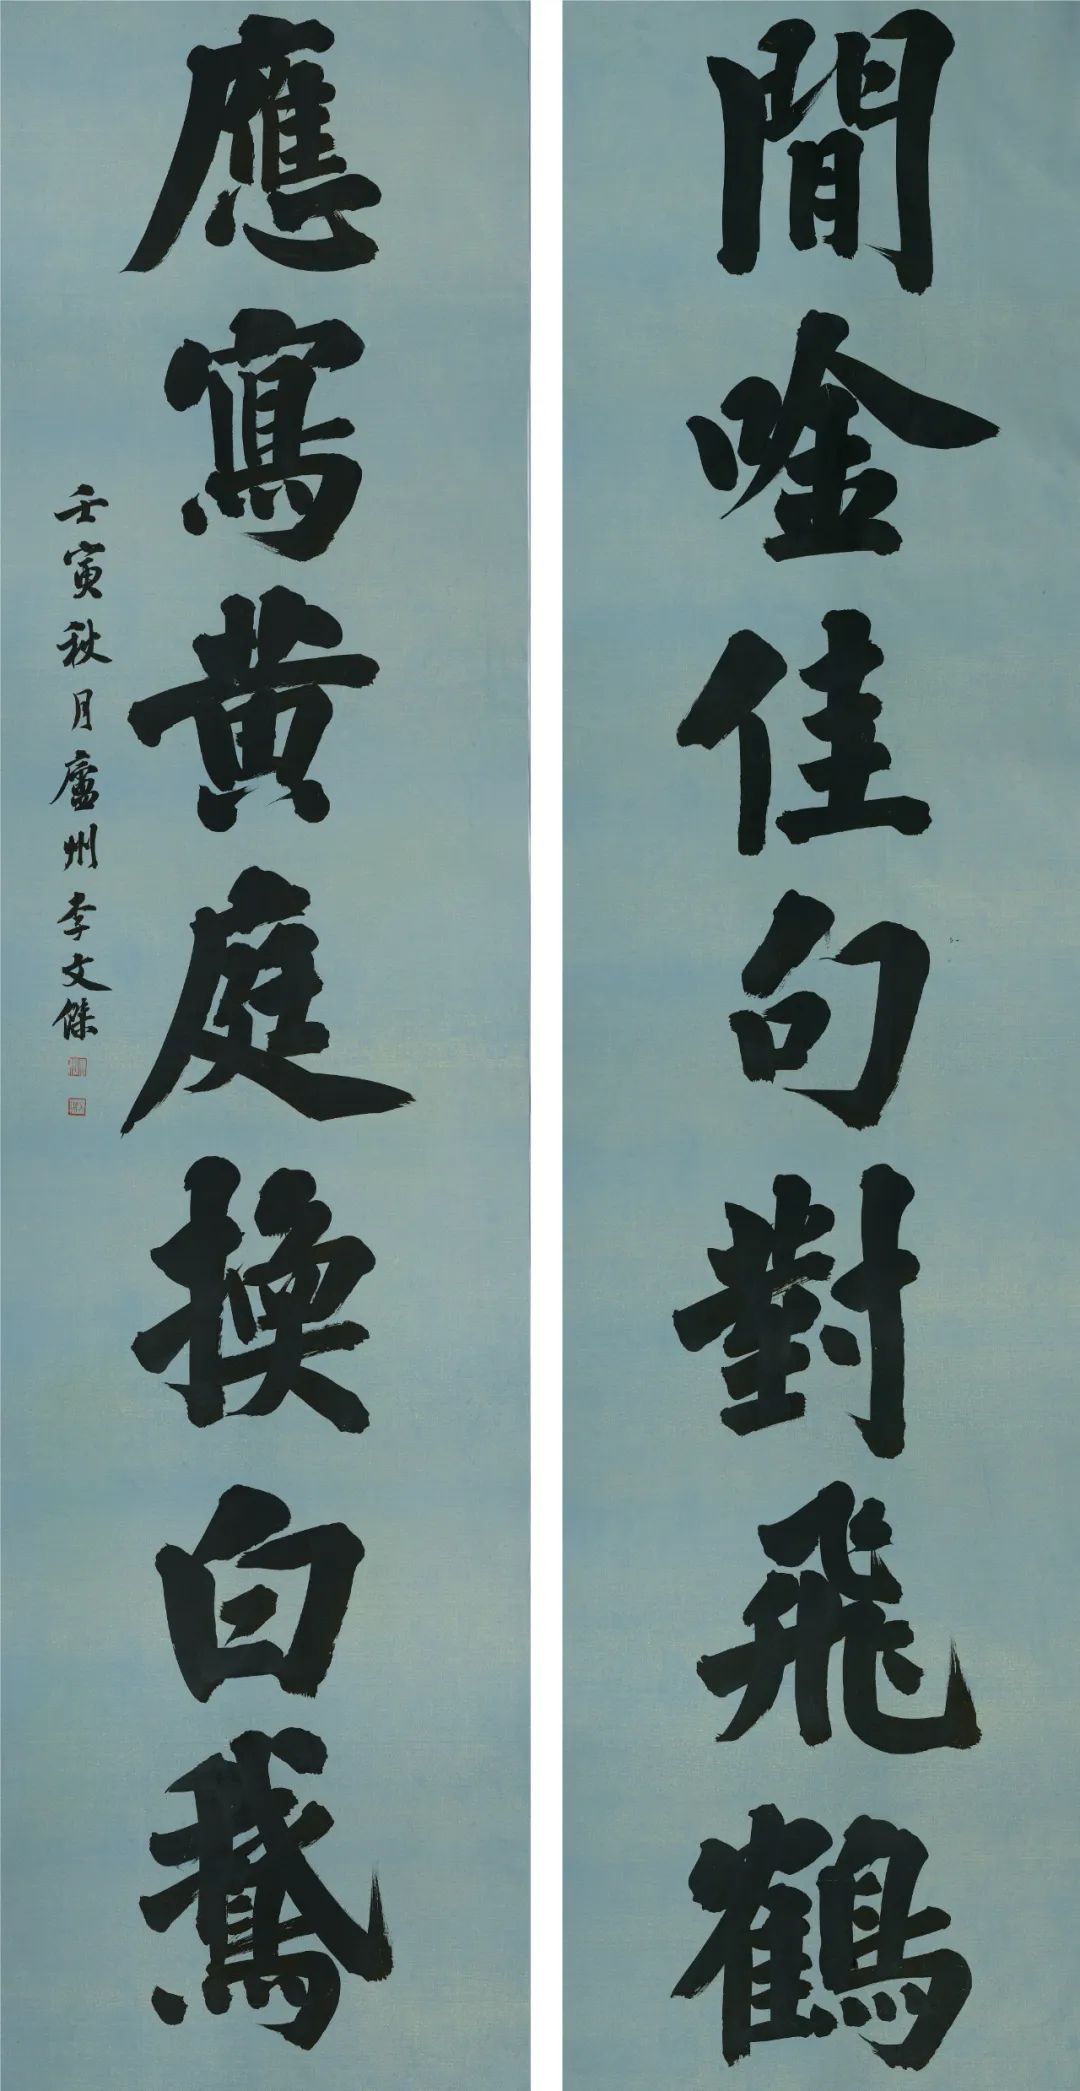 閒唫佳句對飛鶴
應寫黄庭換白鵞
壬寅秋月廬州李文傑